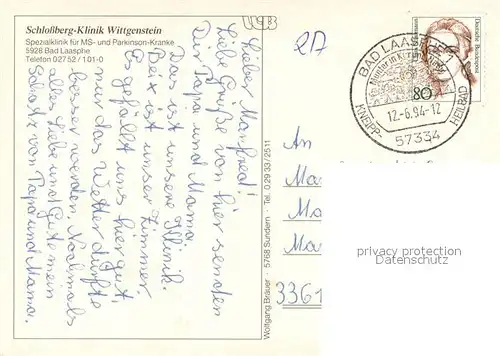 Schloßberg-Klinik Wittgenstein
Spezialklinik für MS- und Parkinson-Kranke
5928 Bad Laasphe
Telefon 02752 / 101-0
Lieber Manfred!
Liebe Grüße von hier senden
Dir Papa und Mama.
Das ist unsere Klinik.
Bei x ist unser Zimmer.
Es gefällt uns hier gut,
nur das Wetter dürfte
besser werden. Nochmals
alles Liebe und Gute mein
Schatz von Papa und Mama.
Wolfgang Bräuer · 5768 Sundern · Tel. 0 29 33 / 25 11
BAD LAASPHE 1
12.-6.94-12
KNEIPP-
HEILBAD
57334
Deutsche Bundespost
80
An
Ma
Ma
Ma
3361
privacy protection
Datenschutz